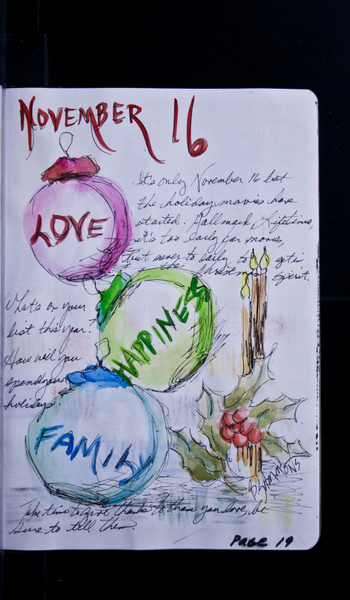 NOVEMBER 16
LOVE
It's only November 16 but
the holiday movies have
started. Hallmark, Lifetime,
it's too early for movies,
but never to early to
Christmas Spirit.
HAPPINESS
What's on your
list this year?
How will you
spend your
holidays?
FAMILY
Take time to give thanks to those you love, be
sure to tell them
Page 19